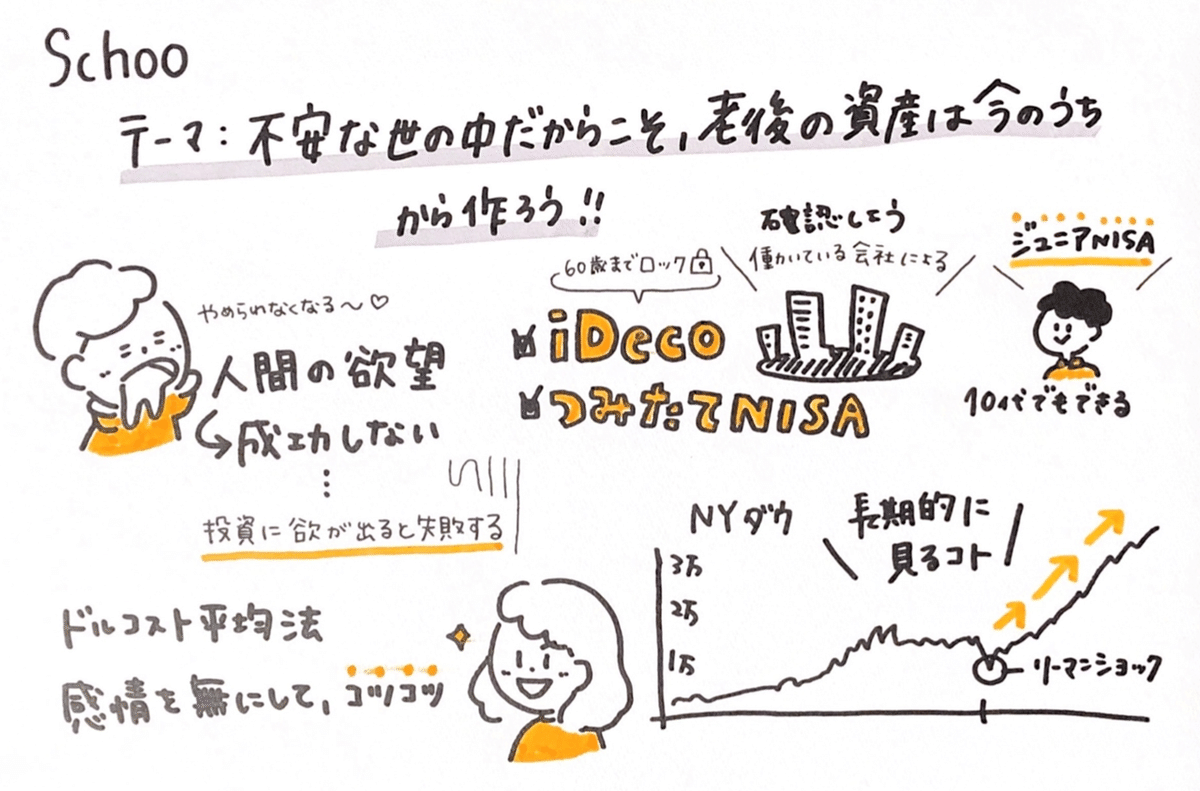 Schoo
テーマ:不安な世の中だからこそ,老後の資産は今のうち
から作ろう!!
やめられなくなる〜♡
人間の欲望
成功しない
投資に欲が出ると失敗する
ドルコスト平均法
感情を無にして,コツコツ
60歳までロック
iDeco
つみたてNISA
確認しよう
働いている会社による
ジュニアNISA
10代でもできる
NYダウ
長期的に
見るコト
3万
2万
1万
リーマンショック